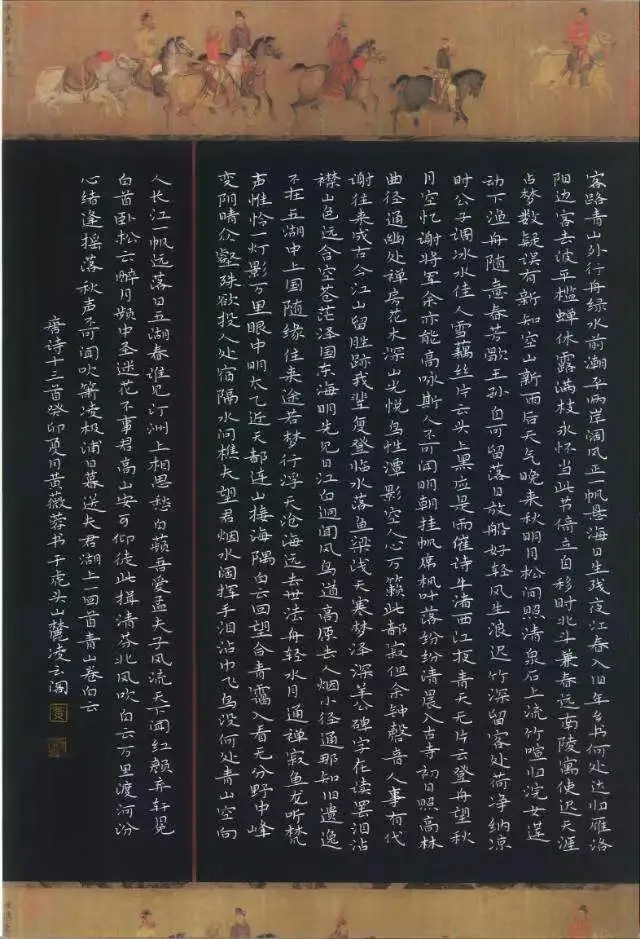 客路青山外行舟绿水前潮平两岸阔风正一帆悬海日生残夜江春入旧年乡书何处达归雁洛
阳边客去波平槛蝉休露满枝永怀当此节倚立自移时北斗兼春远南陵寓使迟天涯
占梦数疑误有新知空山新雨后天气晚来秋明月松间照清泉石上流竹喧归浣女莲
动下渔舟随意春芳歇王孙自可留落日放船好轻风生浪迟竹深留客处荷净纳凉
时公子调冰水佳人雪藕丝片云头上黑应是雨催诗牛渚西江夜青天无片云登舟望秋
月空忆谢将军余亦能高咏斯人不可闻明朝挂帆席枫叶落纷纷清晨入古寺初日照高林
曲径通幽处禅房花木深山光悦鸟性潭影空人心万籁此都寂但余钟磬音人事有代
谢往来成古今江山留胜迹我辈复登临水落鱼梁浅天寒梦泽深羊公碑字在读罢泪沾
襟山色远含空苍茫泽国东海明先见日江白迥闻风鸟道高原去人烟小径通那知旧遗逸
不在五湖中上国随缘往来途若梦行浮天沧海远去世法舟轻水月通禅寂鱼龙听梵
声惟怜一灯影万里眼中明太乙近天都连山接海隅白云回望合青霭入看无分野中峰
变阴晴众壑殊欲投人处宿隔水问樵夫望君烟水阔挥手泪沾巾飞鸟没何处青山空向
人长江一帆远落日五湖春谁见汀洲上相思愁白蘋吾爱孟夫子风流天下闻红颜弃轩冕
白首卧松云醉月频中圣迷花不事君高山安可仰徒此揖清芬北风吹白云万里渡河汾
心绪逢摇落秋声不可闻吹箫凌极浦日暮送夫君湖上一回首青山卷白云
唐诗十三首癸卯夏月黄薇蓉书于虎头山麓凌云阁